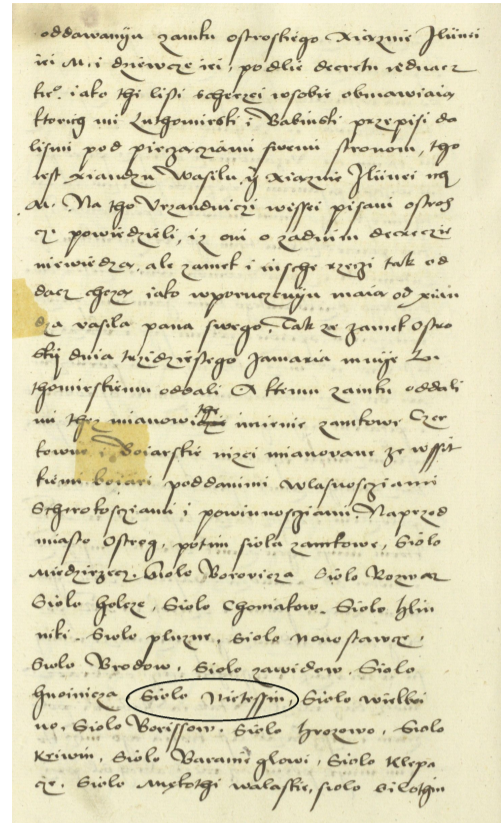 oddawaniju zamku ostroskiego Xiężnie Ilinei
iei M. i dziewcze iei, podlie decretu iednacz
kie°. iako thi listi scherzei wsobie obmawiaią
ktorich mi Luthomirski i Babinski przepisi da
lismi pod pieczęciami swemi stronom, tho
iest xiandzu Wasilu, y Xiężnie Ilinei
M. Na tho Vrzandniczi wissei pisani ostros
czi powiedzieli, iz oni o zadnim decrecie
niewiedzą, ale zamek i insche rzeczi tak od
dacz chczą iako wporuczeniju maią od xian
dza vasila pana swego, Tak ze zamek Ostro
skij dnia trzidziestego Januaria mnije Lu
thomierskiemu oddali A ktemu zamku oddali
mi thez mianowi the imienie zamkowe Czer
kowne i Boiarskie nizei mianowane ze wssit
kiemi boiari poddanimi wlasnosciami
Scherokosciami i powinnosciami. Naprzod
miasto Ostrog, potim siola zamkowe, Siolo
Miedzirzecz, Siolo Borovicza Siolo Rozwaz
Siolo holcze, Siolo Chomakow. Siolo hlin
niki. Siolo pluzne, Siolo nowostawcze,
Siolo Brodow, Siolo zawidow, Siolo
hnoinicza Siolo Nietessin, Siolo wielboi
no, Siolo Borissow, Siolo hrozowo, Siolo
Kriwin, Siolo Baranie glowi, Siolo Klepa
cze, Siolo Mękothi walaskie, siolo bilothin